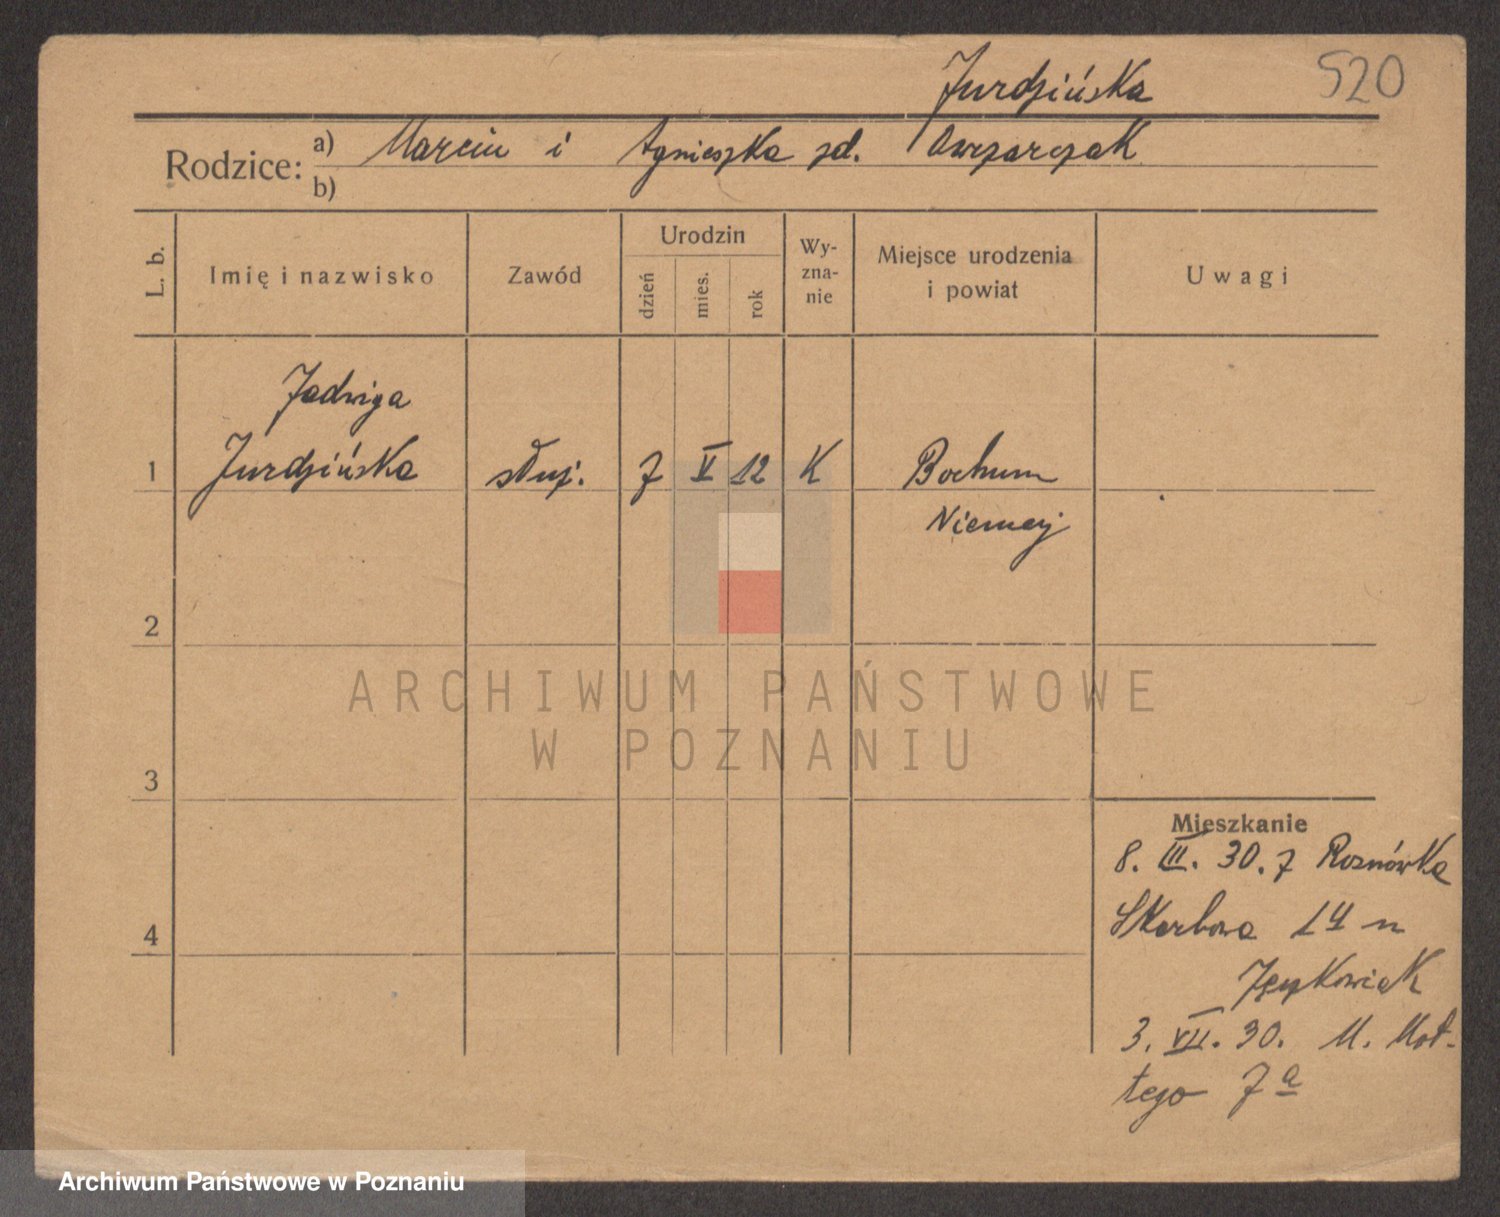 Jurdzińska 520
Rodzice: a) Marcin i Agnieszka zd. Owczarczak
b)
L. b. Imię i nazwisko Zawód Urodzin dzień mies. rok Wyznanie Miejsce urodzenia i powiat Uwagi
Jadwiga
1 Jurdzińska służ. 7 V 12 K Bochum
Niemcy
2
ARCHIWUM PAŃSTWOWE
W POZNANIU
3
Mieszkanie
8. III. 30. z Roznówka
4 Skarbowa 14 m
Językowiak
3. VII. 30. M. Mot-
tego 7a
Archiwum Państwowe w Poznaniu